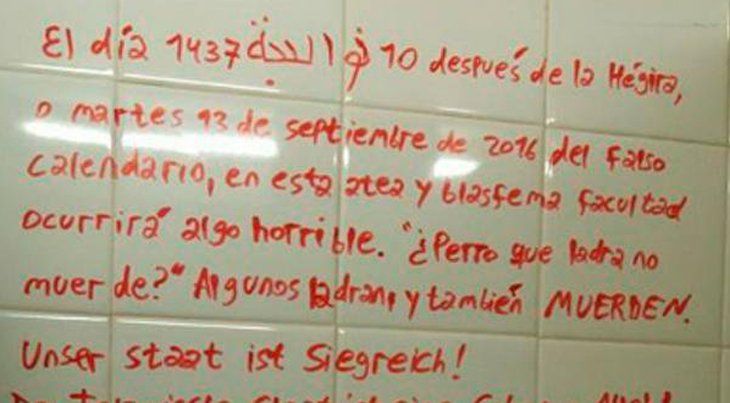 El día 1437 ذو الحجة 10 después de la Hégira,
o martes 13 de septiembre de 2016 del falso
calendario, en esta atea y blasfema facultad
ocurrirá algo horrible. "¿Perro que ladra no
muerde?" Algunos ladran, y también MUERDEN.
Unser staat ist Siegreich!